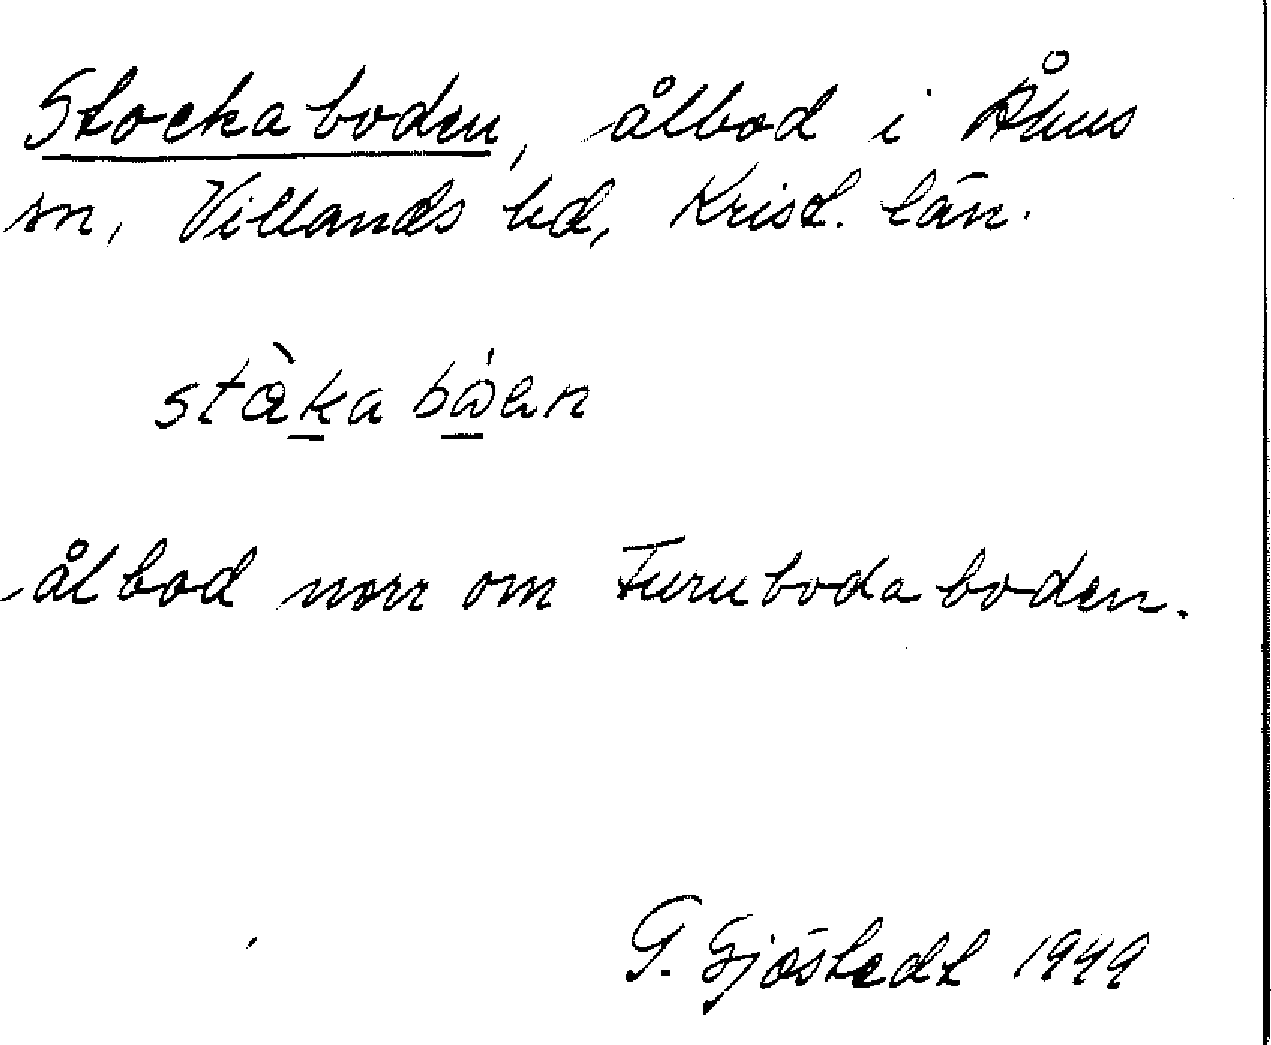 Stockaboden, ålbod i Åhus
sn, Villands hd, Krist. län.
stàka bǻen
ålbod norr om Furuboda boden.
G. Sjöstedt 1949